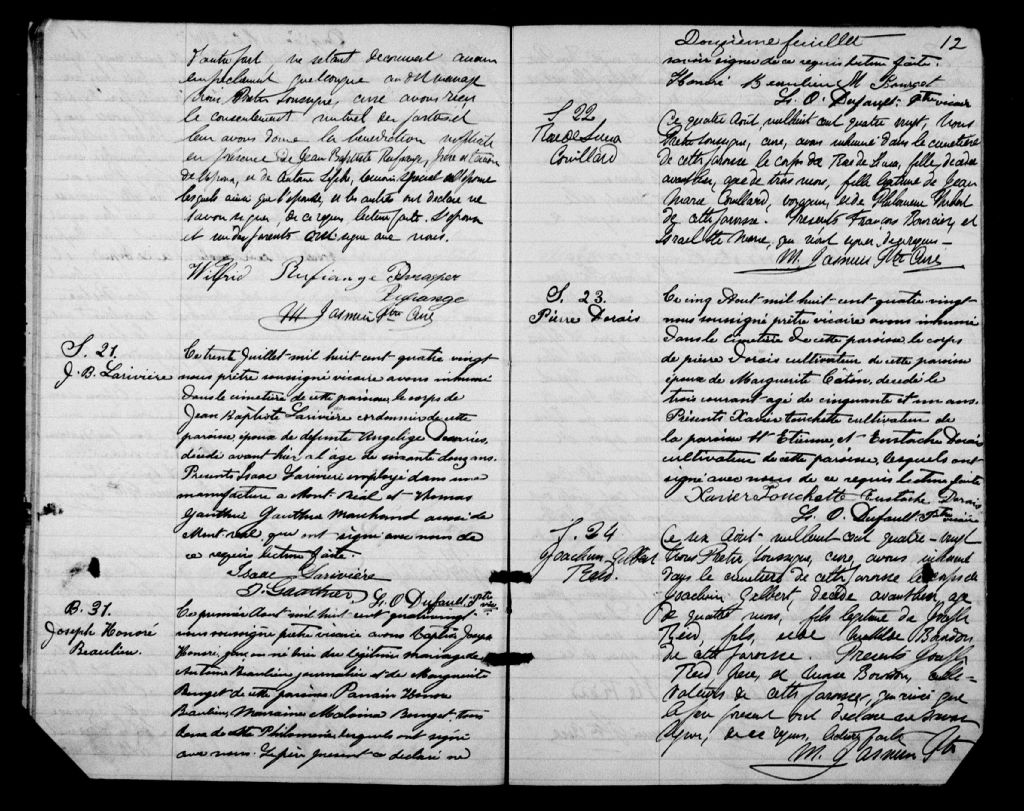 d'autre part, ne s'étant découvert aucun
empêchement quelconque au dit mariage
Nous, Prêtre soussigné, curé avons reçu
le consentement mutuel de
leur avons donné la bénédiction nuptiale
en présence de Jean Baptiste Rufiange, père et
de l'époux, et de témoin spécial de l'épouse
lesquels ainsi que l'épouse, et les autres ont déclaré ne
savoir signer de ce requis lecture faite. L'époux
et un des parents ont signé avec nous.
Wilfrid Rufiange Prosper
Rufiange
M Jasmin Ptre Curé
S. 21.
J. B. Larivière
Ce trente Juillet mil huit cent quatre vingt
nous prêtre soussigné vicaire avons inhumé
dans le cimetière de cette paroisse le corps de
Jean Baptiste Larivière cordonnier de cette
paroisse, époux de défunte Angelige
décédé avant hier à l'âge de soixante douze ans.
Présents Isaac Larivière employé dans une
manufacture à Mont-Réal et Thomas
Gauthier Gauthier Marchand aussi de
Mont-real, qui ont signé avec nous de
ce requis lecture faite.
Isaac Larivière
T. Gauthier Ls. O. Dufault Ptre vic.
B. 31.
Joseph Honoré
Beaulieu.
Ce premier Aout mil huit cent quatrevingt
nous soussigné prêtre vicaire avons baptisé Joseph
Honoré, né hier du légitime mariage de
Antoine Beaulieu journalier et de Marguerite
Bourget de cette paroisse. Parrain Honoré
Beaulieu, Marraine Malvina Bourget tous
deux de Ste Philomène lesquels ont signé
avec nous. Le père présent a déclaré ne
Douzième feuillet 12
savoir signer de ce requis lecture faite.
Honoré Beaulieu M Bourget
Ls. O. Dufault Ptre vicaire
S. 22
Rose de Lima
Couillard
Ce quatre Aout, mil huit cent quatre vingt, Nous
Prêtre soussigné, curé, avons inhumé dans le cimetière
de cette paroisse le corps de Rose de Lima, fille décédée
avant hier, agée de trois mois, fille légitime de Jean
Marie Couillard, voyageur, et de Philomène Hubert
de cette paroisse. Présents François et
Israel Ste Marie, qui n'ont signer de ce requis
M. Jasmin Ptre Curé
S. 23.
Pierre Dorais
Ce cinq Aout mil huit-cent quatre-vingt
nous soussigné prêtre vicaire avons inhumé
dans le cimetière de cette paroisse le corps
de pierre Dorais cultivateur de cette paroisse
époux de Marguerite Caton, décédé le
trois courant agé de cinquante et un ans.
Présents Xavier Touchette cultivateur de
la paroisse St Etienne, et Eustache Dorais
cultivateur de cette paroisse, lesquels ont
signé avec nous de ce requis lecture faite
Xavier Touchette Eustache Dorais
Ls. O. Dufault Ptre vicaire
S. 24
Joachim Gilbert
Reid.
Ce six Aout mil huit cent quatre-vingt
Nous Prêtre soussigné, curé, avons inhumé
dans le cimetière de cette paroisse le corps de
Joachim Gelbert, décédé avant hier agé
de quatre mois, fils légitime de Joseph
Reid, fils, et de Mathilde Bourdon
de cette paroisse. Présents Joseph
Reid père, et Bourdon, culti-
vateurs de cette paroisse, qui ainsi que
le père présent ont déclaré ne savoir
signer, de ce requis, lecture faite
M. Jasmin Ptre